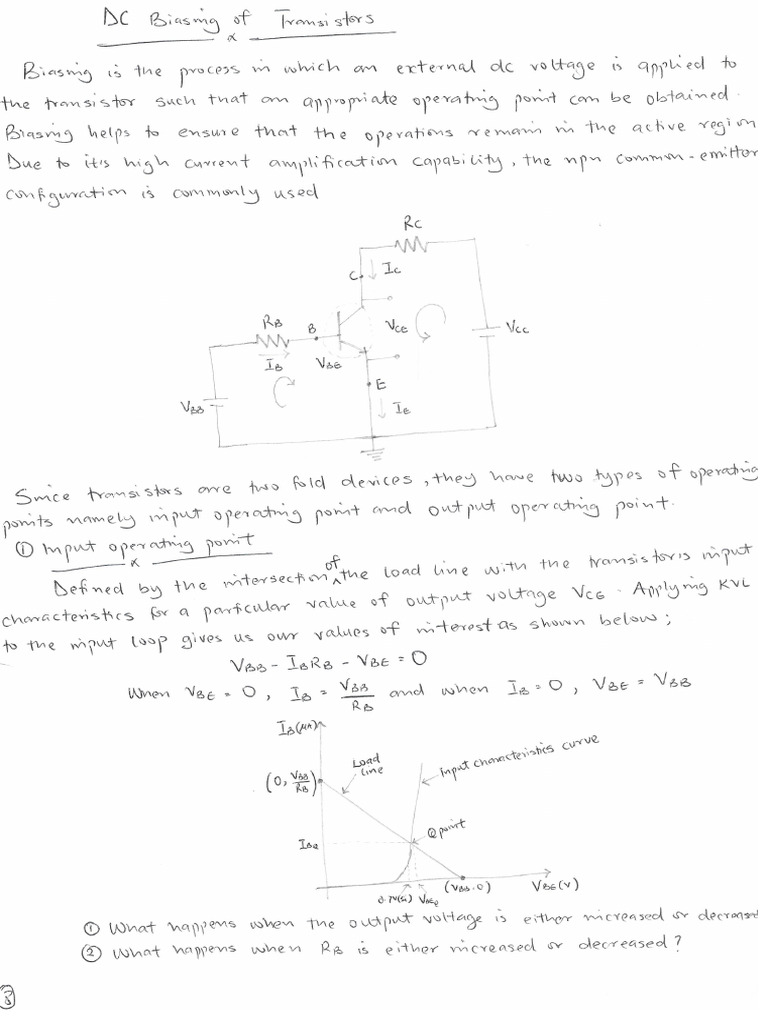 DC Biasing of Transistors
Biasing is the process in which an external dc voltage is applied to
the transistor such that an appropriate operating point can be obtained.
Biasing helps to ensure that the operations remain in the active region
Due to it's high current amplification capability, the npn common-emitter
configuration is commonly used
RC
C
IC
RB
B
VCE
VCC
IB
VBE
E
VBB
IE
Since transistors are two fold devices, they have two types of operating
points namely input operating point and output operating point.
① Input operating point
Defined by the intersection of the load line with the transistor's input
characteristics for a particular value of output voltage VCE. Applying KVL
to the input loop gives us our values of interest as shown below;
VBB - IBRB - VBE = 0
When VBE = 0, IB = VBB/RB and when IB = 0, VBE = VBB
IB(μA)
Load
line
input characteristics curve
(0, VBB/RB)
Q point
IBQ
(VBB, 0)
VBE(V)
0.7V(Si) VBEQ
① What happens when the output voltage is either increased or decreased
② What happens when RB is either increased or decreased?
3